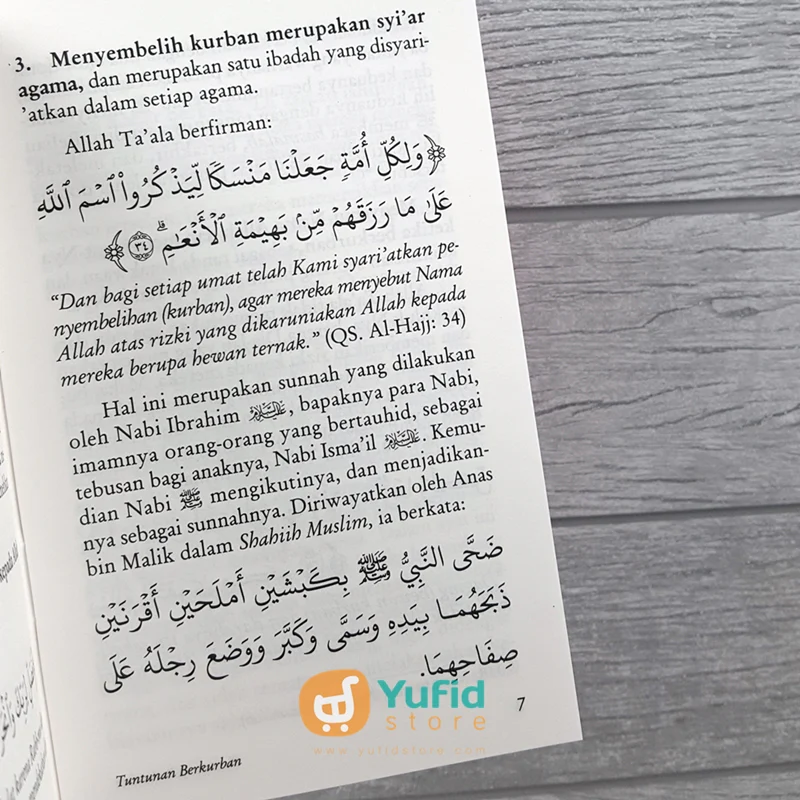 3. Menyembelih kurban merupakan syi'ar
agama, dan merupakan satu ibadah yang disyari-
'atkan dalam setiap agama.
Allah Ta'ala berfirman:
﴿وَلِكُلِّ أُمَّةٍ جَعَلْنَا مَنسَكًا لِّيَذْكُرُوا۟ ٱسْمَ ٱللَّهِ
عَلَىٰ مَا رَزَقَهُم مِّنۢ بَهِيمَةِ ٱلْأَنْعَـٰمِ ۗ ٣٤﴾
"Dan bagi setiap umat telah Kami syari'atkan pe-
nyembelihan (kurban), agar mereka menyebut Nama
Allah atas rizki yang dikaruniakan Allah kepada
mereka berupa hewan ternak." (QS. Al-Hajj: 34)
Hal ini merupakan sunnah yang dilakukan
oleh Nabi Ibrahim عليه السلام, bapaknya para Nabi,
imamnya orang-orang yang bertauhid, sebagai
tebusan bagi anaknya, Nabi Isma'il عليه السلام. Kemu-
dian Nabi ﷺ mengikutinya, dan menjadikan-
nya sebagai sunnahnya. Diriwayatkan oleh Anas
bin Malik dalam Shahiih Muslim, ia berkata:
ضَحَّى النَّبِيُّ ﷺ بِكَبْشَيْنِ أَمْلَحَيْنِ أَقْرَنَيْنِ
ذَبَحَهُمَا بِيَدِهِ وَسَمَّى وَكَبَّرَ وَوَضَعَ رِجْلَهُ عَلَى
صِفَاحِهِمَا.
7
Tuntunan Berkurban
Yufid
store
www.yufidstore.com